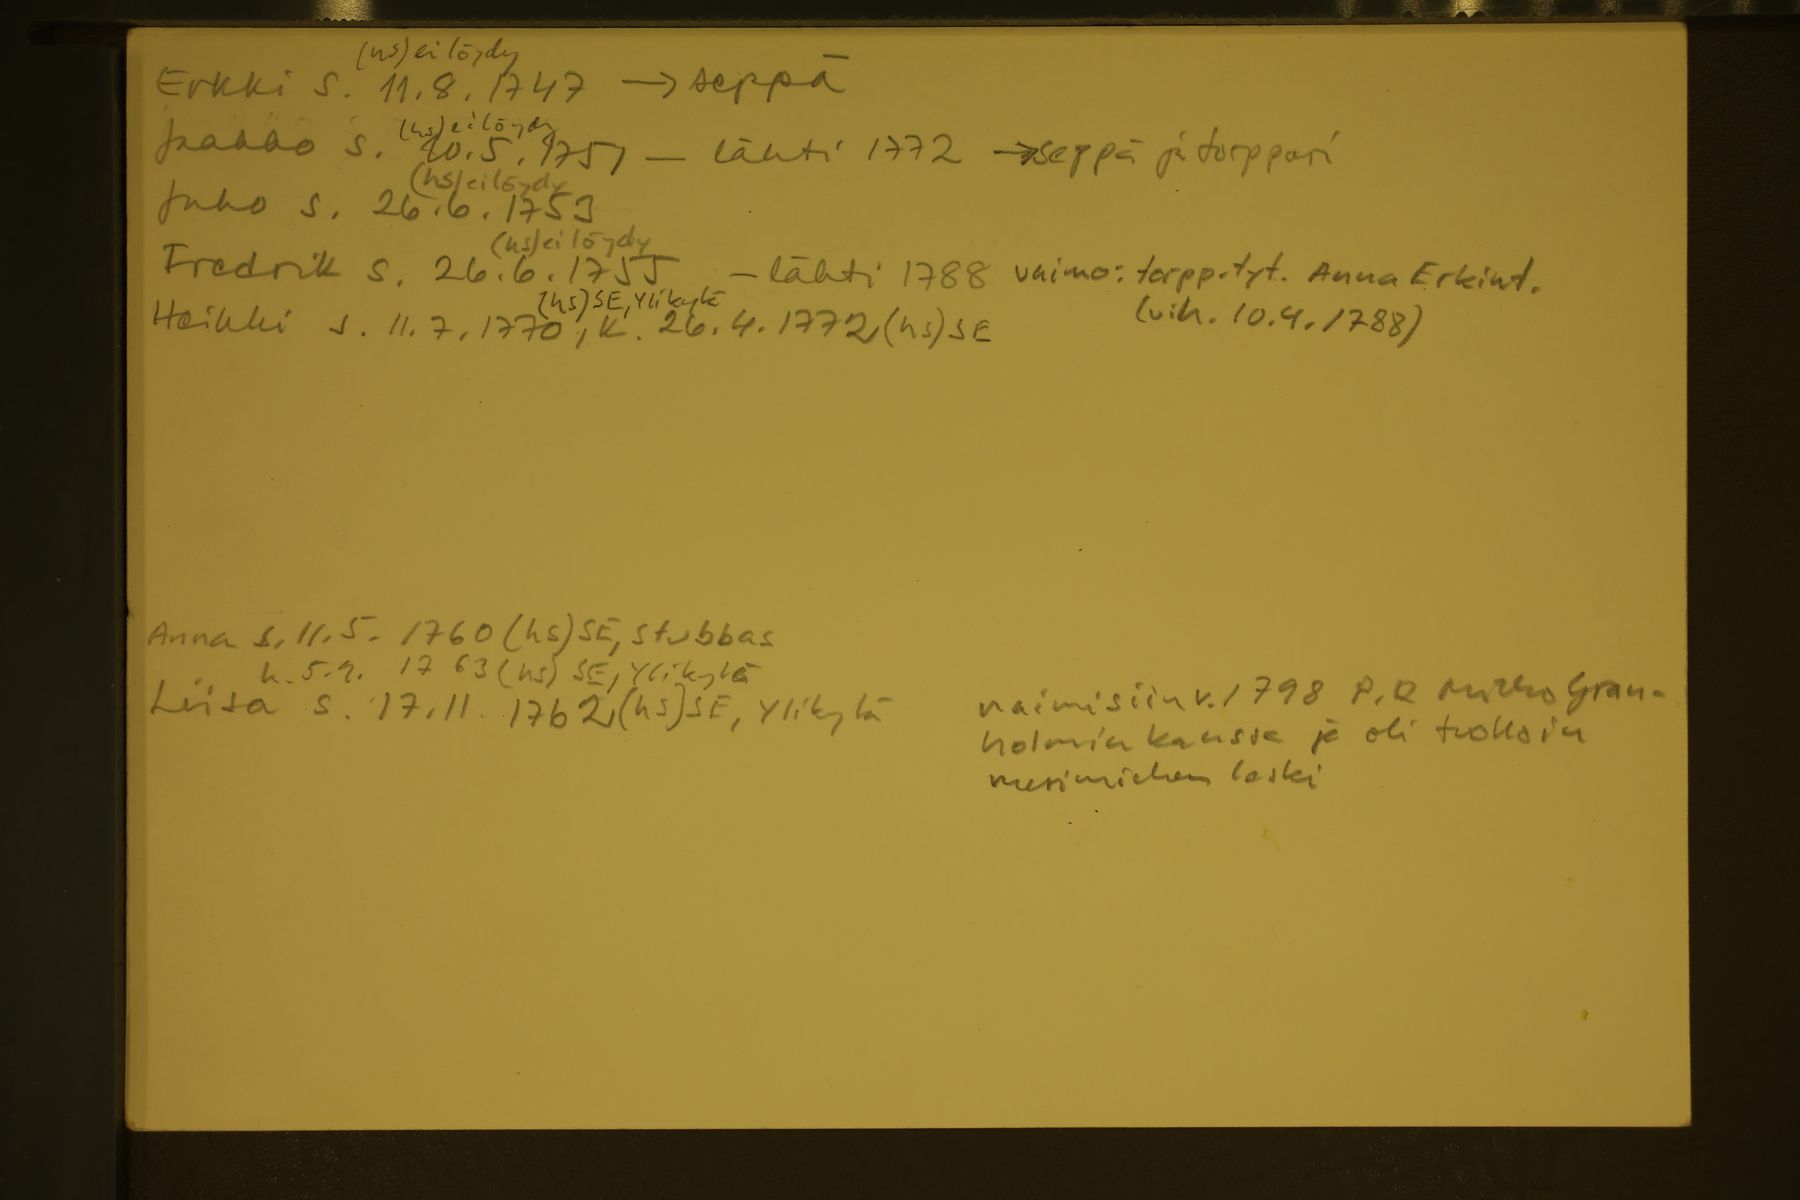 (hs) ei löydy
Erkki s. 11.8.1747 → seppä
(hs) ei löydy
Jaakko s. 10.5.1751 — lähti 1772 → seppä ja torppari
(hs) ei löydy
Juho s. 26.6.1753
(hs) ei löydy
Fredrik s. 26.6.1755 — lähti 1788 vaimo: torpp.tyt. Anna Erkint.
(vih. 10.4.1788)
(hs) SE, Ylikylä
Heikki s. 11.7.1770, k. 26.4.1772 (hs) SE
Anna s. 11.5. 1760 (hs) SE, Stubbas
k. 5.9. 1763 (hs) SE, Ylikylä
Liisa s. 17.11. 1762, (hs) SE, Ylikylä
naimisiin v. 1798 Mikko Gran-
holmin kanssa ja oli tuolloin
merimiehen leski